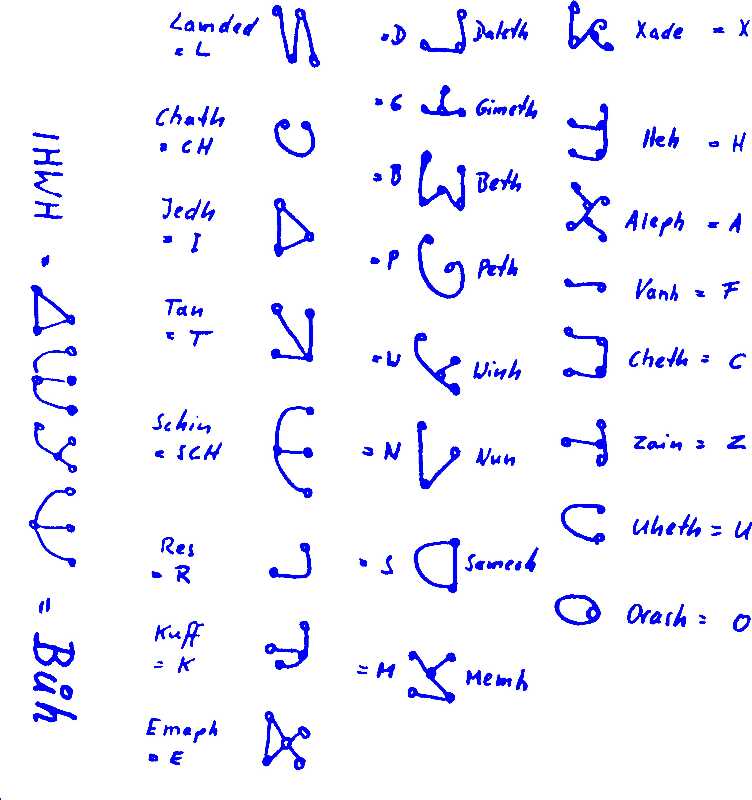 IHWH =
= Båh
Lamded
= L
Chath
= CH
Jedh
= I
Tan
= T
Schin
= SCH
Res
= R
Kuff
= K
Emaph
= E
= D Daleth
= G Gimeth
= B Beth
= P Peth
= W Winh
= N Nun
= S Samech
= M Memh
Xade = X
Heh = H
Aleph = A
Vanh = F
Cheth = C
Zain = Z
Uheth = U
Orash = O